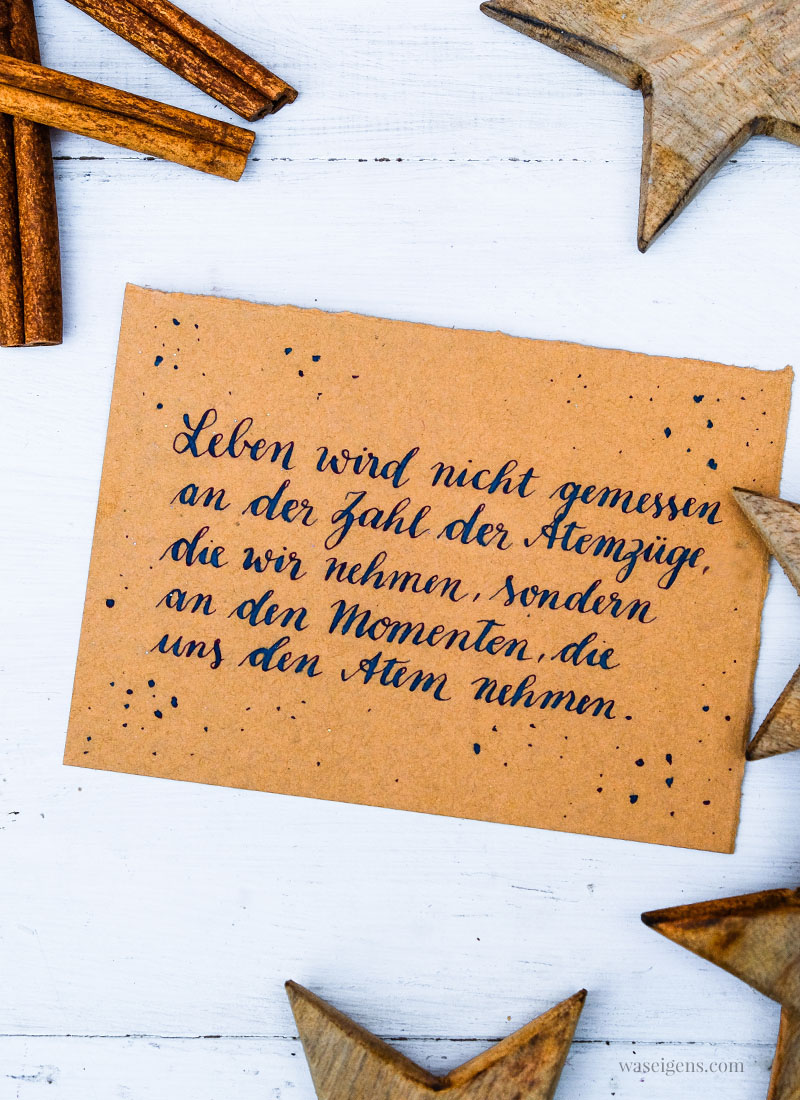 Leben wird nicht gemessen
an der Zahl der Atemzüge,
die wir nehmen, sondern
an den Momenten, die
uns den Atem nehmen.
waseigens.com